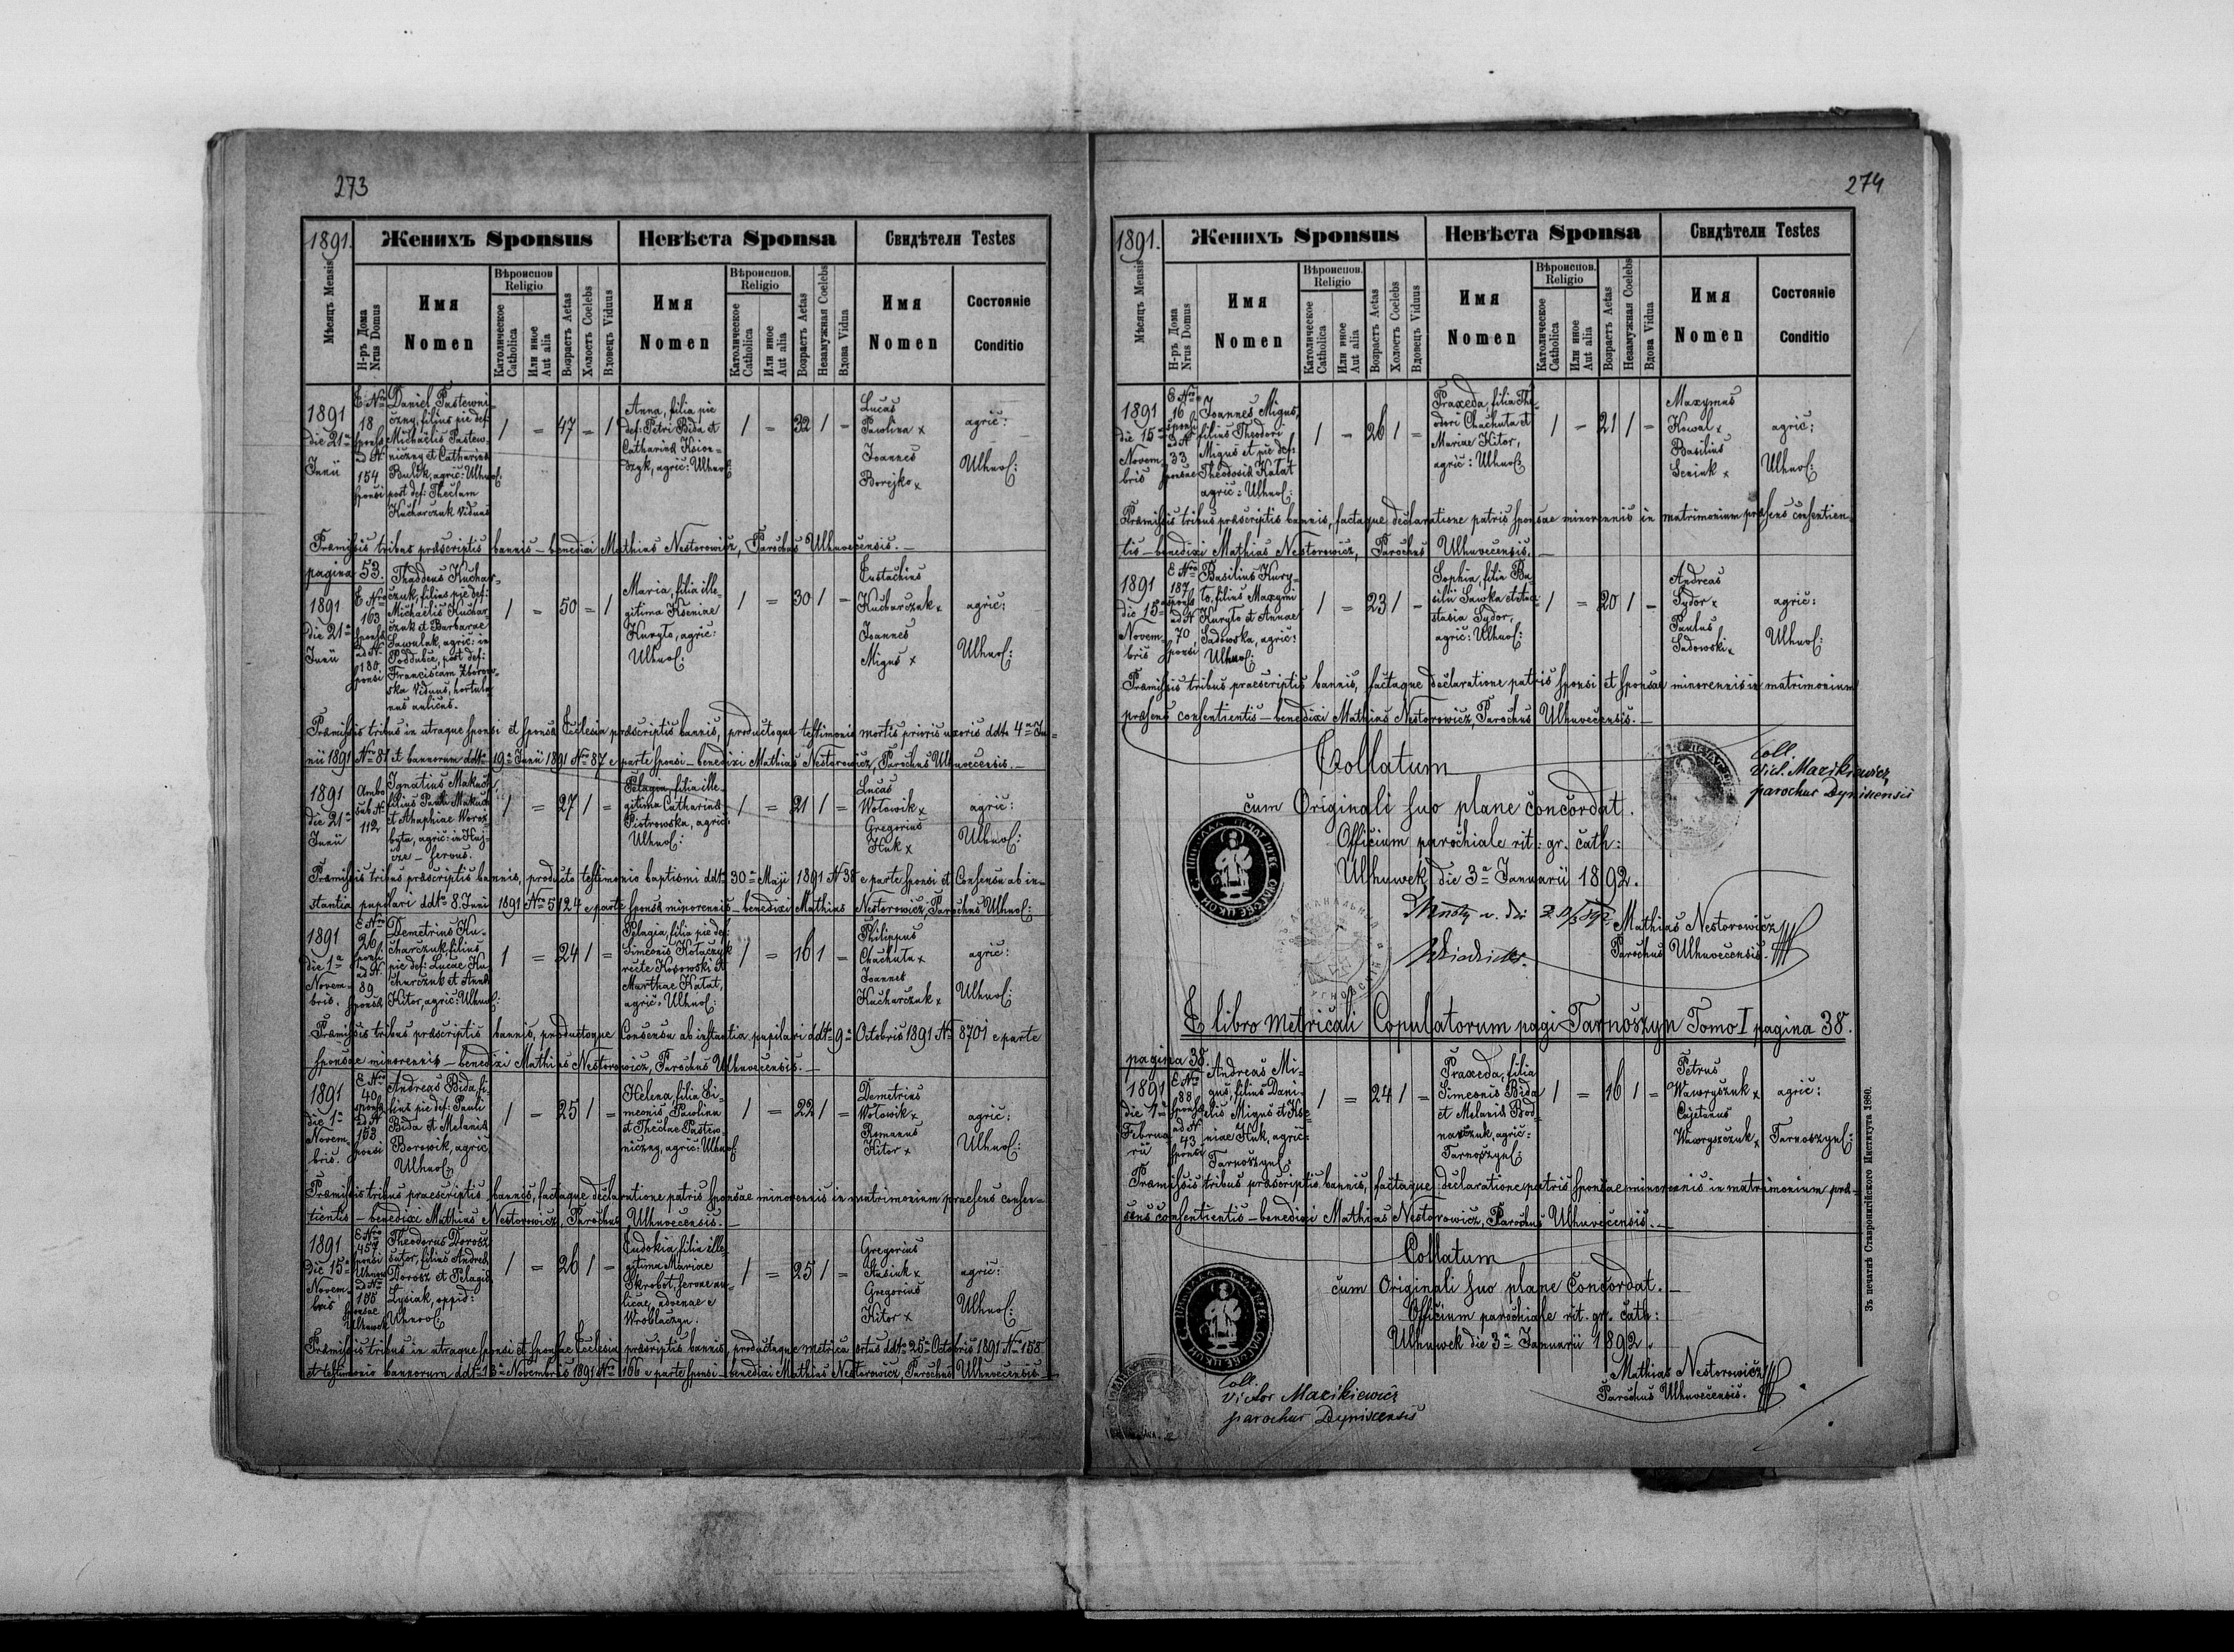 273
1891.
Женихъ Sponsus
Невѣста Sponsa
Свидѣтели Testes
Мѣсяцъ Mensis
Н-ръ Дома
Nrus Domus
Имя
Nomen
Вѣроиспов.
Religio
Католическое
Catholica
Или иное
Aut alia
Возрастъ Aetas
Холостъ Coelebs
Вдовецъ Viduus
Имя
Nomen
Вѣроиспов.
Religio
Католическое
Catholica
Или иное
Aut alia
Возрастъ Aetas
Незамужная Coelebs
Вдова Vidua
Имя
Nomen
Состояніе
Conditio
1891
die 21a
Junii
E Nro
18
sponsae
ad N
154
sponsi
Daniel Pastewni-
czny, filius pie def:
Michaelis Pastew-
niczny et Catharinae
Bulik, agric: Ulhnof:
post def: Theclam
Kucharczuk viduus
1 = 47 = 1
Anna, filia pie
def: Petri Bida et
Catharinae Ksion-
szyk, agric: Ulhnof:
1 = 32 1 =
Lucas
Pawlina x
Joannes
Borejko x
agric:
Ulhnof:
Praemissis tribus praescriptis bannis – benedixi Mathias Nestorowicz, Parochus Ulhuvecensis. –
pagina 53.
1891
die 21a
Junii
E Nro
163
sponsae
ad N.
180
sponsi
Thaddeus Kuchar-
czuk, filius pie def:
Michaelis Kuchar
czuk et Barbarae
Sawulak, agric: in
Poddubce, post def:
Franciscam Zborow-
ska viduus, hortula
nus aulicus.
1 = 50 = 1
Maria, filia ille-
gitima Kseniae
Kuryło, agric:
Ulhnof:
1 = 30 1 =
Eustachius
Kucharczuk x
Joannes
Migus x
agric:
Ulhnof:
Praemissis tribus in utraque sponsi et sponsae Ecclesia praescriptis bannis, productoque testimonio mortis prioris uxoris ddto 4a Ju-
nii 1891 Nro 81 et bannorum ddto 19a Junii 1891 Nro 87 e parte sponsi – benedixi Mathias Nestorowicz, Parochus Ulhuvecensis. –
1891
die 21a
Junii
Ambo
sub N.
112
Ignatius Makuch,
filius Pauli Makuch
et Ahaphiae Worox
byta, agric: in Huj-
cze – servus.
1 = 27 1 =
Pelagia, filia ille-
gitima Catharinae
Piotrowska, agric:
Ulhnof:
1 = 21 1 =
Lucas
Wołowik x
Gregorius
Huk x
agric:
Ulhnof:
Praemissis tribus praescriptis bannis, producto testimonio baptismi ddto 30a Maji 1891 N 38 e parte sponsi et Consensu ab in-
stantia pupilari ddto 8. Junii 1891 Nro 5124 e parte sponsae minorennis – benedixi Mathias Nestorowicz, Parochus Ulhnof:
1891
die 1a
Novem-
bris.
E Nro
26
sponsi
ad N
89
sponsae
Demetrius Ku-
charczuk, filius
pie def: Lucae Ku-
charczuk et Annae
Kitor, agric: Ulhnof:
1 = 24 1 =
Pelagia, filia pie def:
Simeonis Kołaczyk
recte Kosowski et
Marthae Hałat,
agric: Ulhnof:
1 = 16 1 =
Philippus
Chachuta x
Joannes
Kucharczuk x
agric:
Ulhnof:
Praemissis tribus praescriptis bannis, productoque Consensu ab instantia pupilari ddto 9a Octobris 1891 N 8701 e parte
sponsae minorennis – benedixi Mathias Nestorowicz, Parochus Ulhuvecensis. –
1891
die 1a
Novem-
bris.
E Nro
40
sponsae
ad N
153
sponsi
Andreas Bida, fi-
lius pie def: Pauli
Bida et Melaniae
Borowik, agric:
Ulhnof:
1 = 25 1 =
Helena, filia Si-
meonis Pawlina
et Theclae Pastew-
niczny, agric: Ulhnof:
1 = 22 1 =
Demetrius
Wołowik x
Romanus
Kitor x
agric:
Ulhnof:
Praemissis tribus praescriptis bannis, factaque declaratione patris sponsae minorennis in matrimonium praesens consen-
tientis – benedixi Mathias Nestorowicz, Parochus Ulhuvecensis. –
1891
die 15a
Novem-
bris
E Nro
457
sponsi
Uhnow
ad N
155
sponsae
Ulhuwek
Theodorus Dorosz
sutor, filius Andreae
Dorosz et Pelagiae
Łysiak, oppid:
Uhnov:
1 = 26 1 =
Eudokia, filia ille-
gitima Mariae
Skrobot, servae au-
licae, advenae e
Wroblaczyn.
1 = 25 1 =
Gregorius
Stasiuk x
Gregorius
Kitor x
agric:
Ulhnof:
Praemissis tribus in utraque sponsi et sponsae Ecclesia praescriptis bannis, productaque metrica ortus ddto 25a Octobris 1891 Nro 158
et testimonio bannorum ddto 13a Novembris 1891 Nro 166 e parte sponsi – benedixi Mathias Nestorowicz, Parochus Ulhuvecensis. –
274
1891.
Женихъ Sponsus
Невѣста Sponsa
Свидѣтели Testes
Мѣсяцъ Mensis
Н-ръ Дома
Nrus Domus
Имя
Nomen
Вѣроиспов.
Religio
Католическое
Catholica
Или иное
Aut alia
Возрастъ Aetas
Холостъ Coelebs
Вдовецъ Viduus
Имя
Nomen
Вѣроиспов.
Religio
Католическое
Catholica
Или иное
Aut alia
Возрастъ Aetas
Незамужная Coelebs
Вдова Vidua
Имя
Nomen
Состояніе
Conditio
1891
die 15a
Novem
bris
E Nro
16
sponsi
ad N
33
sponsae
Joannes Migus,
filius Theodori
Migus et pie def:
Theodosiae Hałat
agric: Ulhnof:
1 = 26 1 =
Praxeda, filia The-
odori Chachuta et
Mariae Kitor,
agric: Ulhnof:
1 = 21 1 =
Maxymus
Kowal x
Basilius
Seniuk x
agric:
Ulhnof:
Praemissis tribus praescriptis bannis, factaque declaratione patris sponsae minorennis in matrimonium praesens consentien-
tis – benedixi Mathias Nestorowicz, Parochus Ulhuvecensis. –
1891
die 15a
Novem-
bris
E Nro
187
sponsae
ad N
70
sponsi
Basilius Kury-
ło, filius Maxymi
Kuryło et Annae
Sadowska, agric:
Ulhnof:
1 = 23 1 =
Sophia, filia Ba-
silii Sawka et Ana-
stasia Sydor,
agric: Ulhnof:
1 = 20 1 =
Andreas
Sydor x
Paulus
Sadowski x
agric:
Ulhnof:
Praemissis tribus praescriptis bannis, factaque declaratione patris sponsi et sponsae minorennis in matrimonium
praesens consentientis – benedixi Mathias Nestorowicz, Parochus Ulhuvecensis. –
Collatum
cum Originali suo plane concordat.
Officium parochiale rit: gr. cath:
Ulhuwek, die 3a Januarii 1892.
Coll.
Vict. Mazikiewicz
parochus Dyniscensis
Mathias Nestorowicz
Parochus Ulhuvecensis.
E libro metricali Copulatorum pagi Tarnoszyn Tomo I pagina 38.
pagina 38.
1891
die 1a
Februa
rii
E Nro
88
sponsae
ad N
43
sponsi
Andreas Mi-
gus, filius Dani-
elis Migus et Xe-
niae Huk, agric:
Tarnoszynf:
1 = 24 1 =
Praxeda, filia
Simeonis Bida
et Melaniae Bod-
narczuk, agric:
Tarnoszynf:
1 = 16 1 =
Petrus
Wawryszuk x
Cajetanus
Wawryszczuk x
agric:
Tarnoszynf:
Praemissis tribus praescriptis bannis, factaque declaratione patris sponsae minorennis in matrimonium prae-
sens consentientis – benedixi Mathias Nestorowicz, Parochus Ulhuvecensis. –
Collatum
cum Originali suo plane concordat. –
Officium parochiale rit. gr. cath:
Ulhuwek die 3a Januarii 1892.
Mathias Nestorowicz
Parochus Ulhuvecensis.
Coll.
Victor Mazikiewicz
parochus Dyniscensis
Зъ печатнѣ Ставропигійского Института 1880.